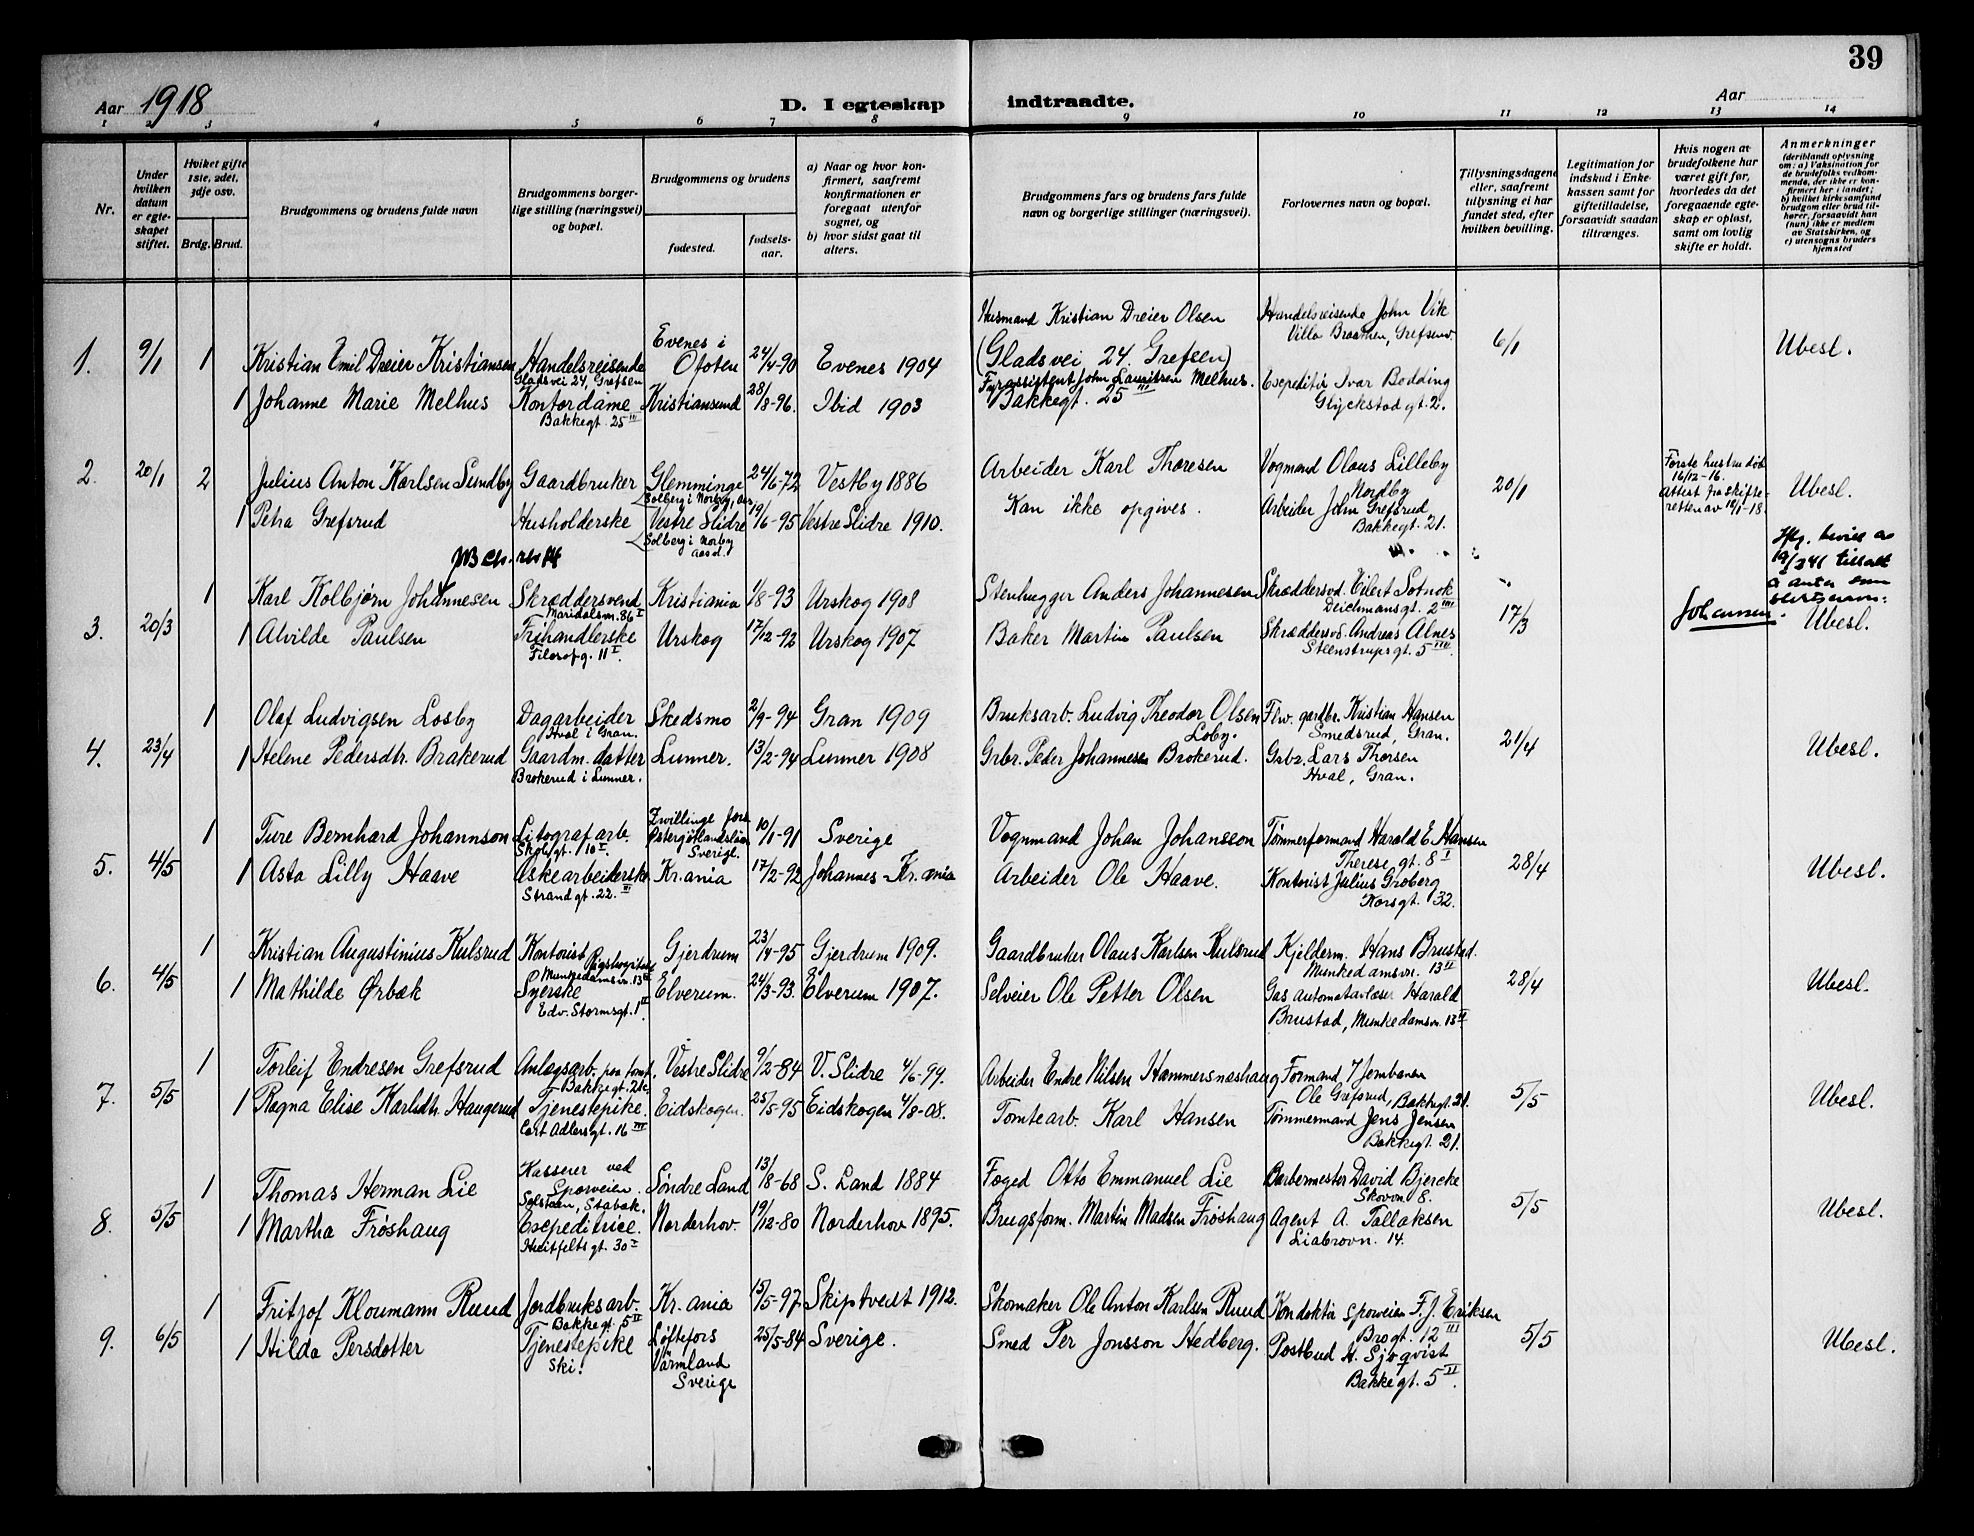 39
Aar 1918
D. I egteskap indtraadte.
Aar
1 2 3 4 5 6 7 8 9 10 11 12 13 14
Nr.
Under hvilken datum er egteskapet stiftet.
Hvilket gifte 1ste, 2det, 3dje osv.
Brdg. Brud.
Brudgommens og brudens fulde navn
Brudgommens borgerlige stilling (næringsvei) og bopæl.
Brudgommens og brudens
fødested.
fødselsaar.
a) Naar og hvor konfirmert, saafremt konfirmationen er foregaat utenfor sognet, og
b) hvor sidst gaat til alters.
Brudgommens fars og brudens fars fulde navn og borgerlige stillinger (næringsvei).
Forlovernes navn og bopæl.
Tillysningsdagene eller, saafremt tillysning ei har fundet sted, efter hvilken bevilling.
Legitimation for indskud i Enkekassen samt for giftetilladelse, forsaavidt saadan tiltrænges.
Hvis nogen av brudefolkene har været gift før, hvorledes da det foregaaende egteskap er opløst, samt om lovlig skifte er holdt.
Anmerkninger
(deriblandt oplysning om: a) Vaksination for de brudefolks vedkommende, der ikke er konfirmert her i landet; b) hvilket kirkesamfund brudgom eller brud tilhører, forsaavidt han (hun) ikke er medlem av Statskirken, og c) utensogns bruders hjemsted
1. 9/1 1 Kristian Emil Dreier Kristiansen Handelsreisende Evenes i Ofoten 24/4-90 Evenes 1904
Gladsvei 24, Grefsen
Husmand Kristian Dreier Olsen
(Gladsvei 24. Grefsen)
Handelsreisende John Vik
Villa Braathen, Grefsenv.
6/1 Ubesl.
1 Johanne Marie Melhus Kontordame Kristiansund 28/8-96. Ibid 1903
Bakkegt. 25 III
Fyrassistent John Lauritzen Melhus.
Bakkegt. 25 III
Expeditør Ivar Bodding
Glyckstadgt. 2.
2. 20/1 2 Julius Anton Karlsen Sundby Gaardbruker Glemminge 24/6-72 Vestby 1886
Solberg i Norby, Aas
Arbeider Karl Thoresen
Vognmand Olaus Lilleby
Nordby
20/1
Første hustru død
16/12-16.
Attest fra skifte-
retten av 10/1-18.
Ubesl.
1 Petra Grefsrud Husholderske Vestre Slidre 19/6-95 Vestre Slidre 1910.
Solberg i Norby
Aasd.
Kan ikke opgives.
Arbeider John Grefsrud
Bakkegt. 21.
3. 20/3 1 Karl Kolbjørn Johannesen Skræddersvend Kristiania 1/8-93 Urskog 1908
Maridalsvn. 86 I
Stenhugger Anders Johannesen
Skræddersvd. Eilert Sotnok
Deichmansgt. 2 III
17/3
Johannesen.
Ubesl.
1 Alvilde Paulsen Frihandlerske Urskog 17/12-92 Urskog 1907
Filosofg. 11 I.
Baker Martin Paulsen
Skræddersvd. Andreas Alnes
Steenstrupsgt. 5 III.
4. 23/4 1 Olaf Ludvigsen Losby Dagarbeider Skedsmo 2/9-94 Gran 1909
Hval i Gran.
Bruksarb. Ludvig Theodor Olsen
Loby.
Flw. gardbr. Kristian Hansen
Smedsrud, Gran.
21/4 Ubesl.
1 Helene Pedersdtr. Brakerud Gaardm. datter Lunner. 13/2-94 Lunner 1908
Brokerud i Lunner.
Grbr. Peder Johannesen Brokerud.
Grbr. Lars Thorsen
Hval, Gran.
5. 4/5 1 Ture Bernhard Johannson Litografarb. 10/1-91 Sverige
Skolegt. 10 I.
Zwillinge fors
Østergötlandslän
Sverige.
Vognmand Johan Johansson
Tømmerformand Harald E. Hansen
Therese gt. 8 I
28/4 Ubesl.
1 Asta Lilly Haave Æskearbeiderske Kr.ania 17/2-92 Johannes - Kr.ania
Strandgt. 22. III
Arbeider Ole Haave.
Kontorist Julius Groberg
Korsgt. 32.
6. 4/5 1 Kristian Augustinius Kulsrud Kontorist Rigshospitalet Gjerdrum 23/4-95 Gjerdrum 1909.
Munkedamsvn. 13 II
Gaardbruker Olaus Karlsen Kulsrud
Kjelderm. Hans Brustad.
Munkedamsvn. 13 II
28/4 Ubesl.
1 Mathilde Ørbæk Syerske Elverum. 24/3-93. Elverum 1907.
Edv. Stormsgt. 1 II.
Selveier Ole Petter Olsen
Gas automatavlæser Harald
Brustad, Munkedamsvn. 13 II
7. 5/5 1 Torleif Endresen Grefsrud Anlægsarb. paa tomt. Vestre Slidre 9/2-84 V. Slidre 4/6-99.
Bakkegt. 21c.
Arbeider Endre Nilsen Hammersneshaug
Formand v/ Jernbanen
Ole Grefsrud, Bakkegt. 21.
5/5 Ubesl.
1 Ragna Elise Karlsdtr. Haugerud Tjenestepike. Eidskogen. 25/5-95 Eidskogen 4/8-08.
Cort Adlersgt. 16 III
Tomtearb. Karl Hansen
Tømmermand Jens Jensen
Bakkegt. 21.
8. 5/5 1 Thomas Herman Lie Kasserer ved Sporveien. Søndre Land 13/8-68 S. Land 1884
Solsteen, Stabæk.
Foged Otto Emmanuel Lie
Barbermester David Bjercke
Skovvn 8.
5/5 Ubesl.
1 Martha Frøshaug Expeditrice. Norderhov. 19/12-80 Norderhov 1895.
Huitfeltsgt. 30 I
Brugsform. Martin Madsen Frøshaug
Agent A. Tallaksen
Liabrovn. 14.
9. 6/5 1 Fritjof Kloumann Ruud Jordbruksarb. Kr.ania 15/5-97 Skiptvedt 1912.
Bakkegt. 5 II
Skomaker Ole Anton Karlsen Ruud
Konduktør Sporveien F. J. Eriksen
Brogt. 12 III
5/5 Ubesl.
1 Hilda Persdotter Tjenestepike Løftefors 25/5-84 Sverige.
Ski.
Värmland
Sverige
Smed Per Jonsson Hedberg.
Postbud H. Sjøqvist
Bakkegt. 5 II.